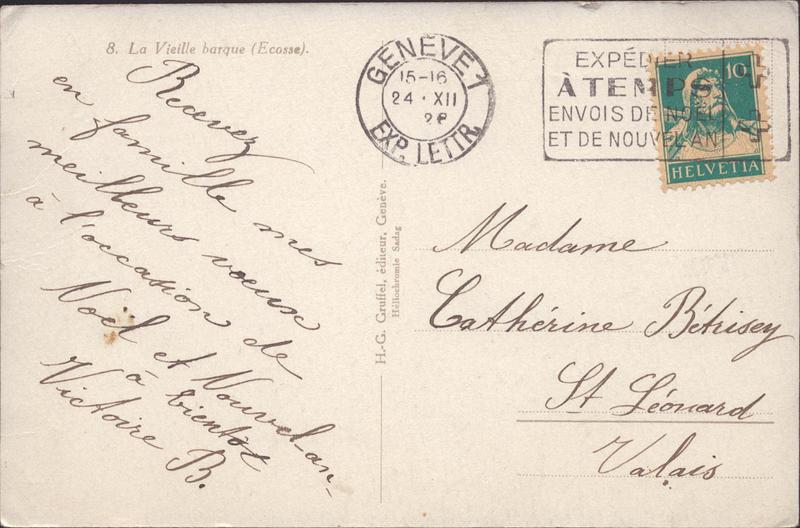 8. La Vieille barque (Ecosse).
Recevez
en famille mes
meilleurs vœux
à l'occasion de
Noël et Nouvel-an-
à bientôt
Victoire B.
H.-G. Gruffel, éditeur, Genève.
Héliochromie Sadag
GENÈVE 1
15-16
24 · XII
28
EXP. LETTR.
EXPÉDIER
À TEMPS
ENVOIS DE NOËL
ET DE NOUVEL AN
10
HELVETIA
Madame
Cathérine Bétrisey
St Léonard
Valais